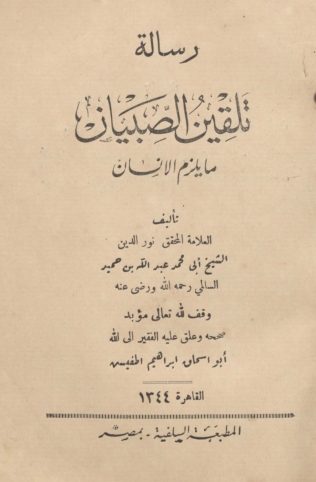 رسالة
تلقين الصبيان
ما يلزم الانسان
تأليف
العلامة المحقق نور الدين
الشيخ أبى محمد عبد الله بن حمير
السالمي رحمه الله ورضى عنه
وقف لله تعالى مؤبد
صححه وعلق عليه الفقير الى الله
أبو اسحاق ابراهيم اطفيش
القاهرة ١٣٤٤
المطبعة السلفية - بمصر